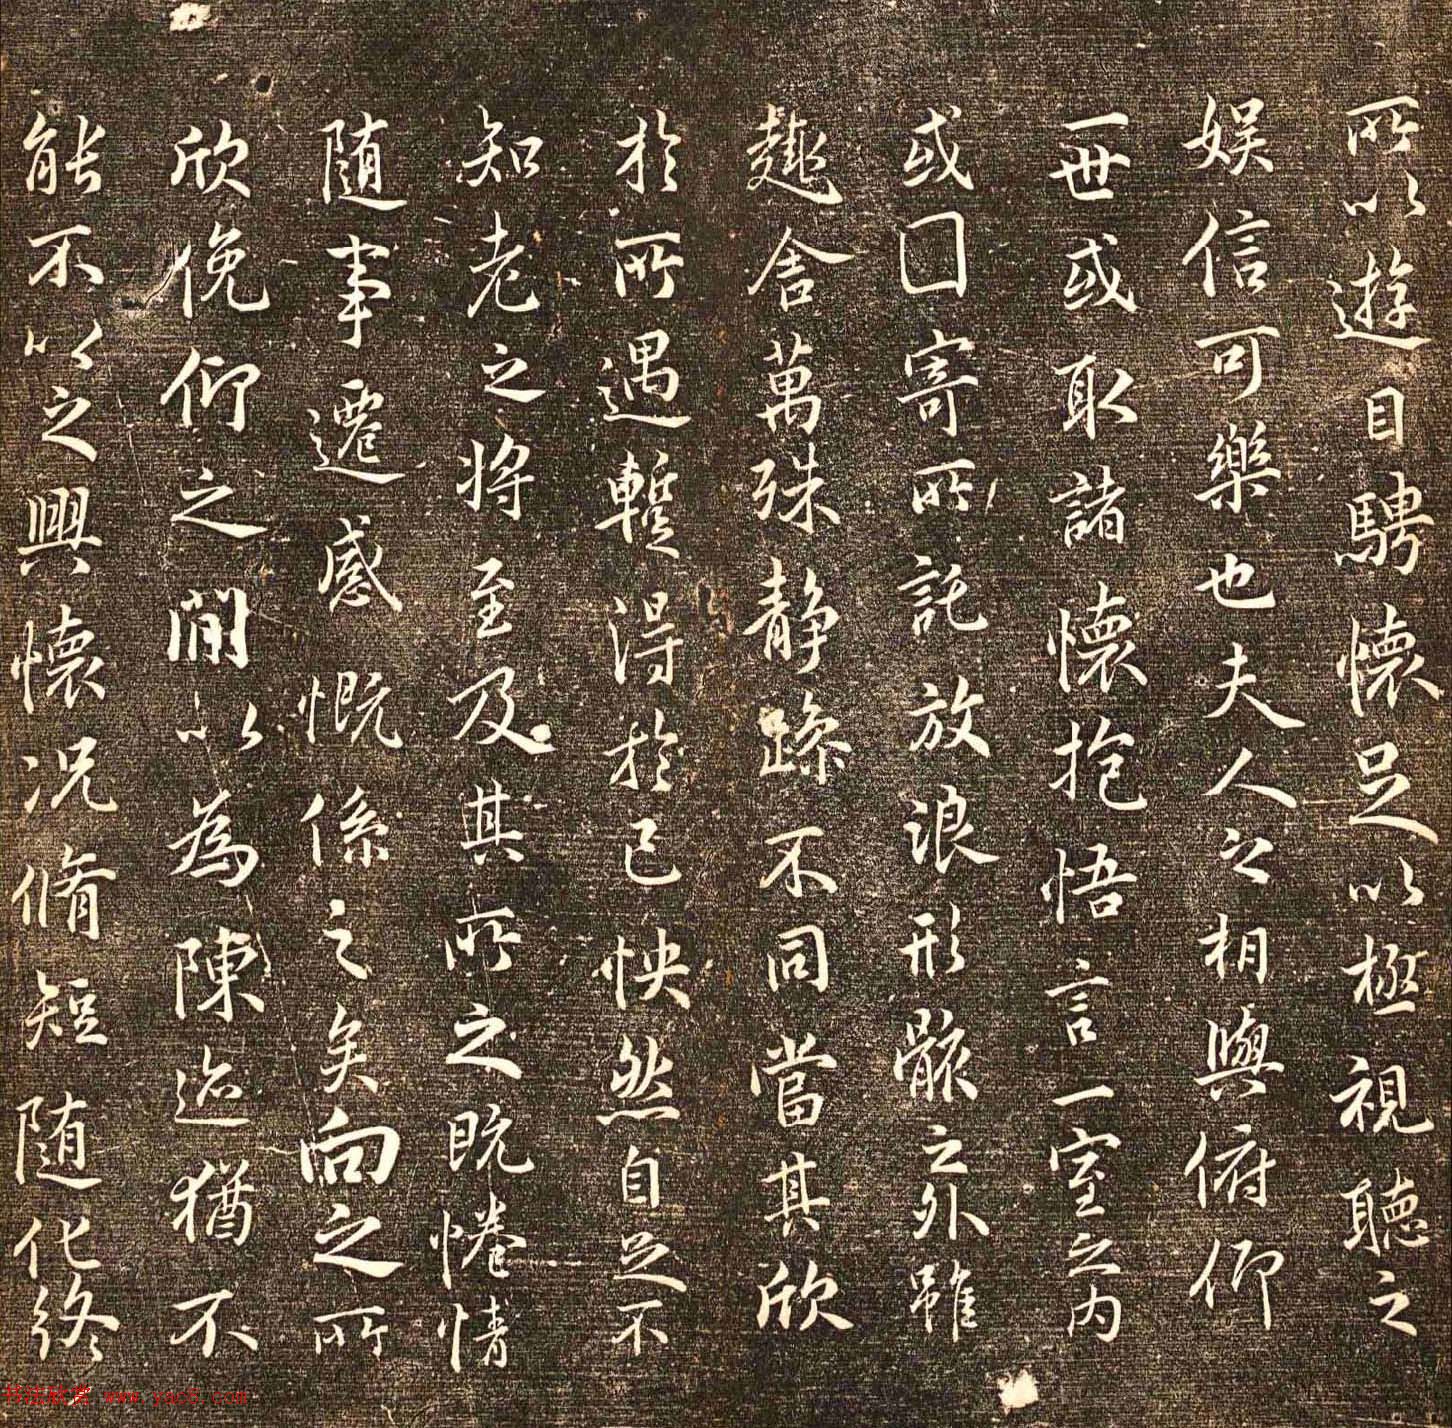 所以遊目騁懷足以極視聽之
娛信可樂也夫人之相與俯仰
一世或取諸懷抱悟言一室之內
或因寄所託放浪形骸之外雖
趣舍萬殊静躁不同當其欣
於所遇蹔得於己怏然自足不
知老之將至及其所之既惓情
随事遷感慨係之矣向之所
欣俛仰之閒以為陳迹猶不
能不以之興懷况脩短随化終
书法欣赏 www.yac8.com